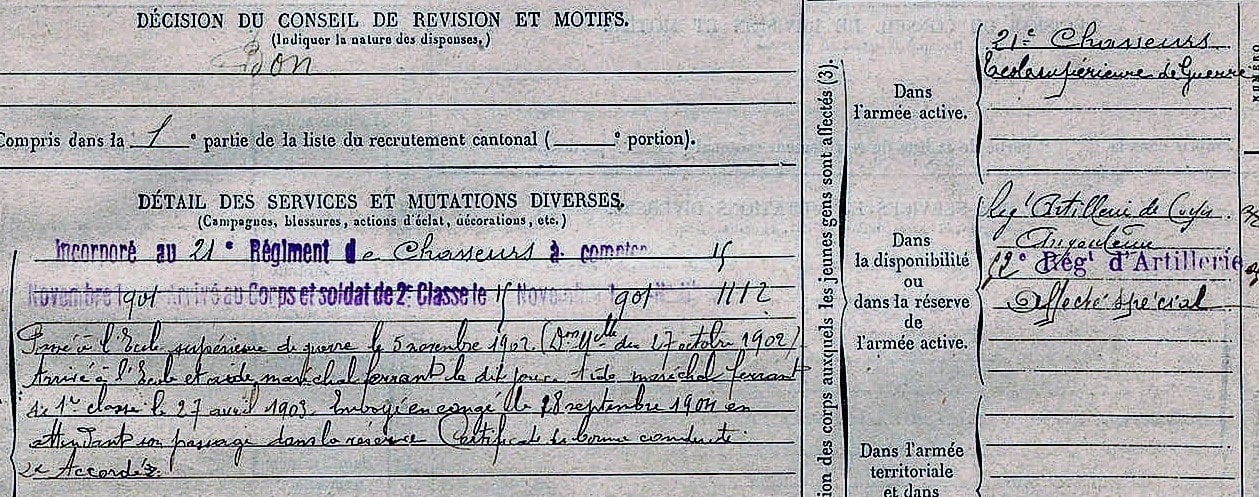 DÉCISION DU CONSEIL DE REVISION ET MOTIFS.
(Indiquer la nature des dispenses.)
Bon
Compris dans la 1e partie de la liste du recrutement cantonal ( e portion).
DÉTAIL DES SERVICES ET MUTATIONS DIVERSES.
(Campagnes, blessures, actions d'éclat, décorations, etc.)
Incorporé au 21e Régiment de Chasseurs à compter 15
Novembre 1901 Arrivé au Corps et soldat de 2e Classe le 15 Novembre 1901 1112
Passé à l'Ecole supérieure de guerre le 5 novembre 1902 (Don Mlle du 27 octobre 1902)
Arrivé à l'Ecole et aide maréchal ferrant le dit jour. Aide maréchal ferrant
de 1re classe le 27 avril 1903. Envoyé en congé le 28 septembre 1904 en
attendant son passage dans la réserve Certificat de bonne conduite
Accordé.
ion des corps auxquels les jeunes gens sont affectés (3).
Dans
l'armée active.
21e Chasseurs
Ecole supérieure de Guerre
Dans
la disponibilité
ou
dans la réserve
de
l'armée active.
Regt Artillerie de Corps
12e Régt d'Artillerie
Affecté spécial
Dans l'armée
territoriale
et dans
NUMÉRO